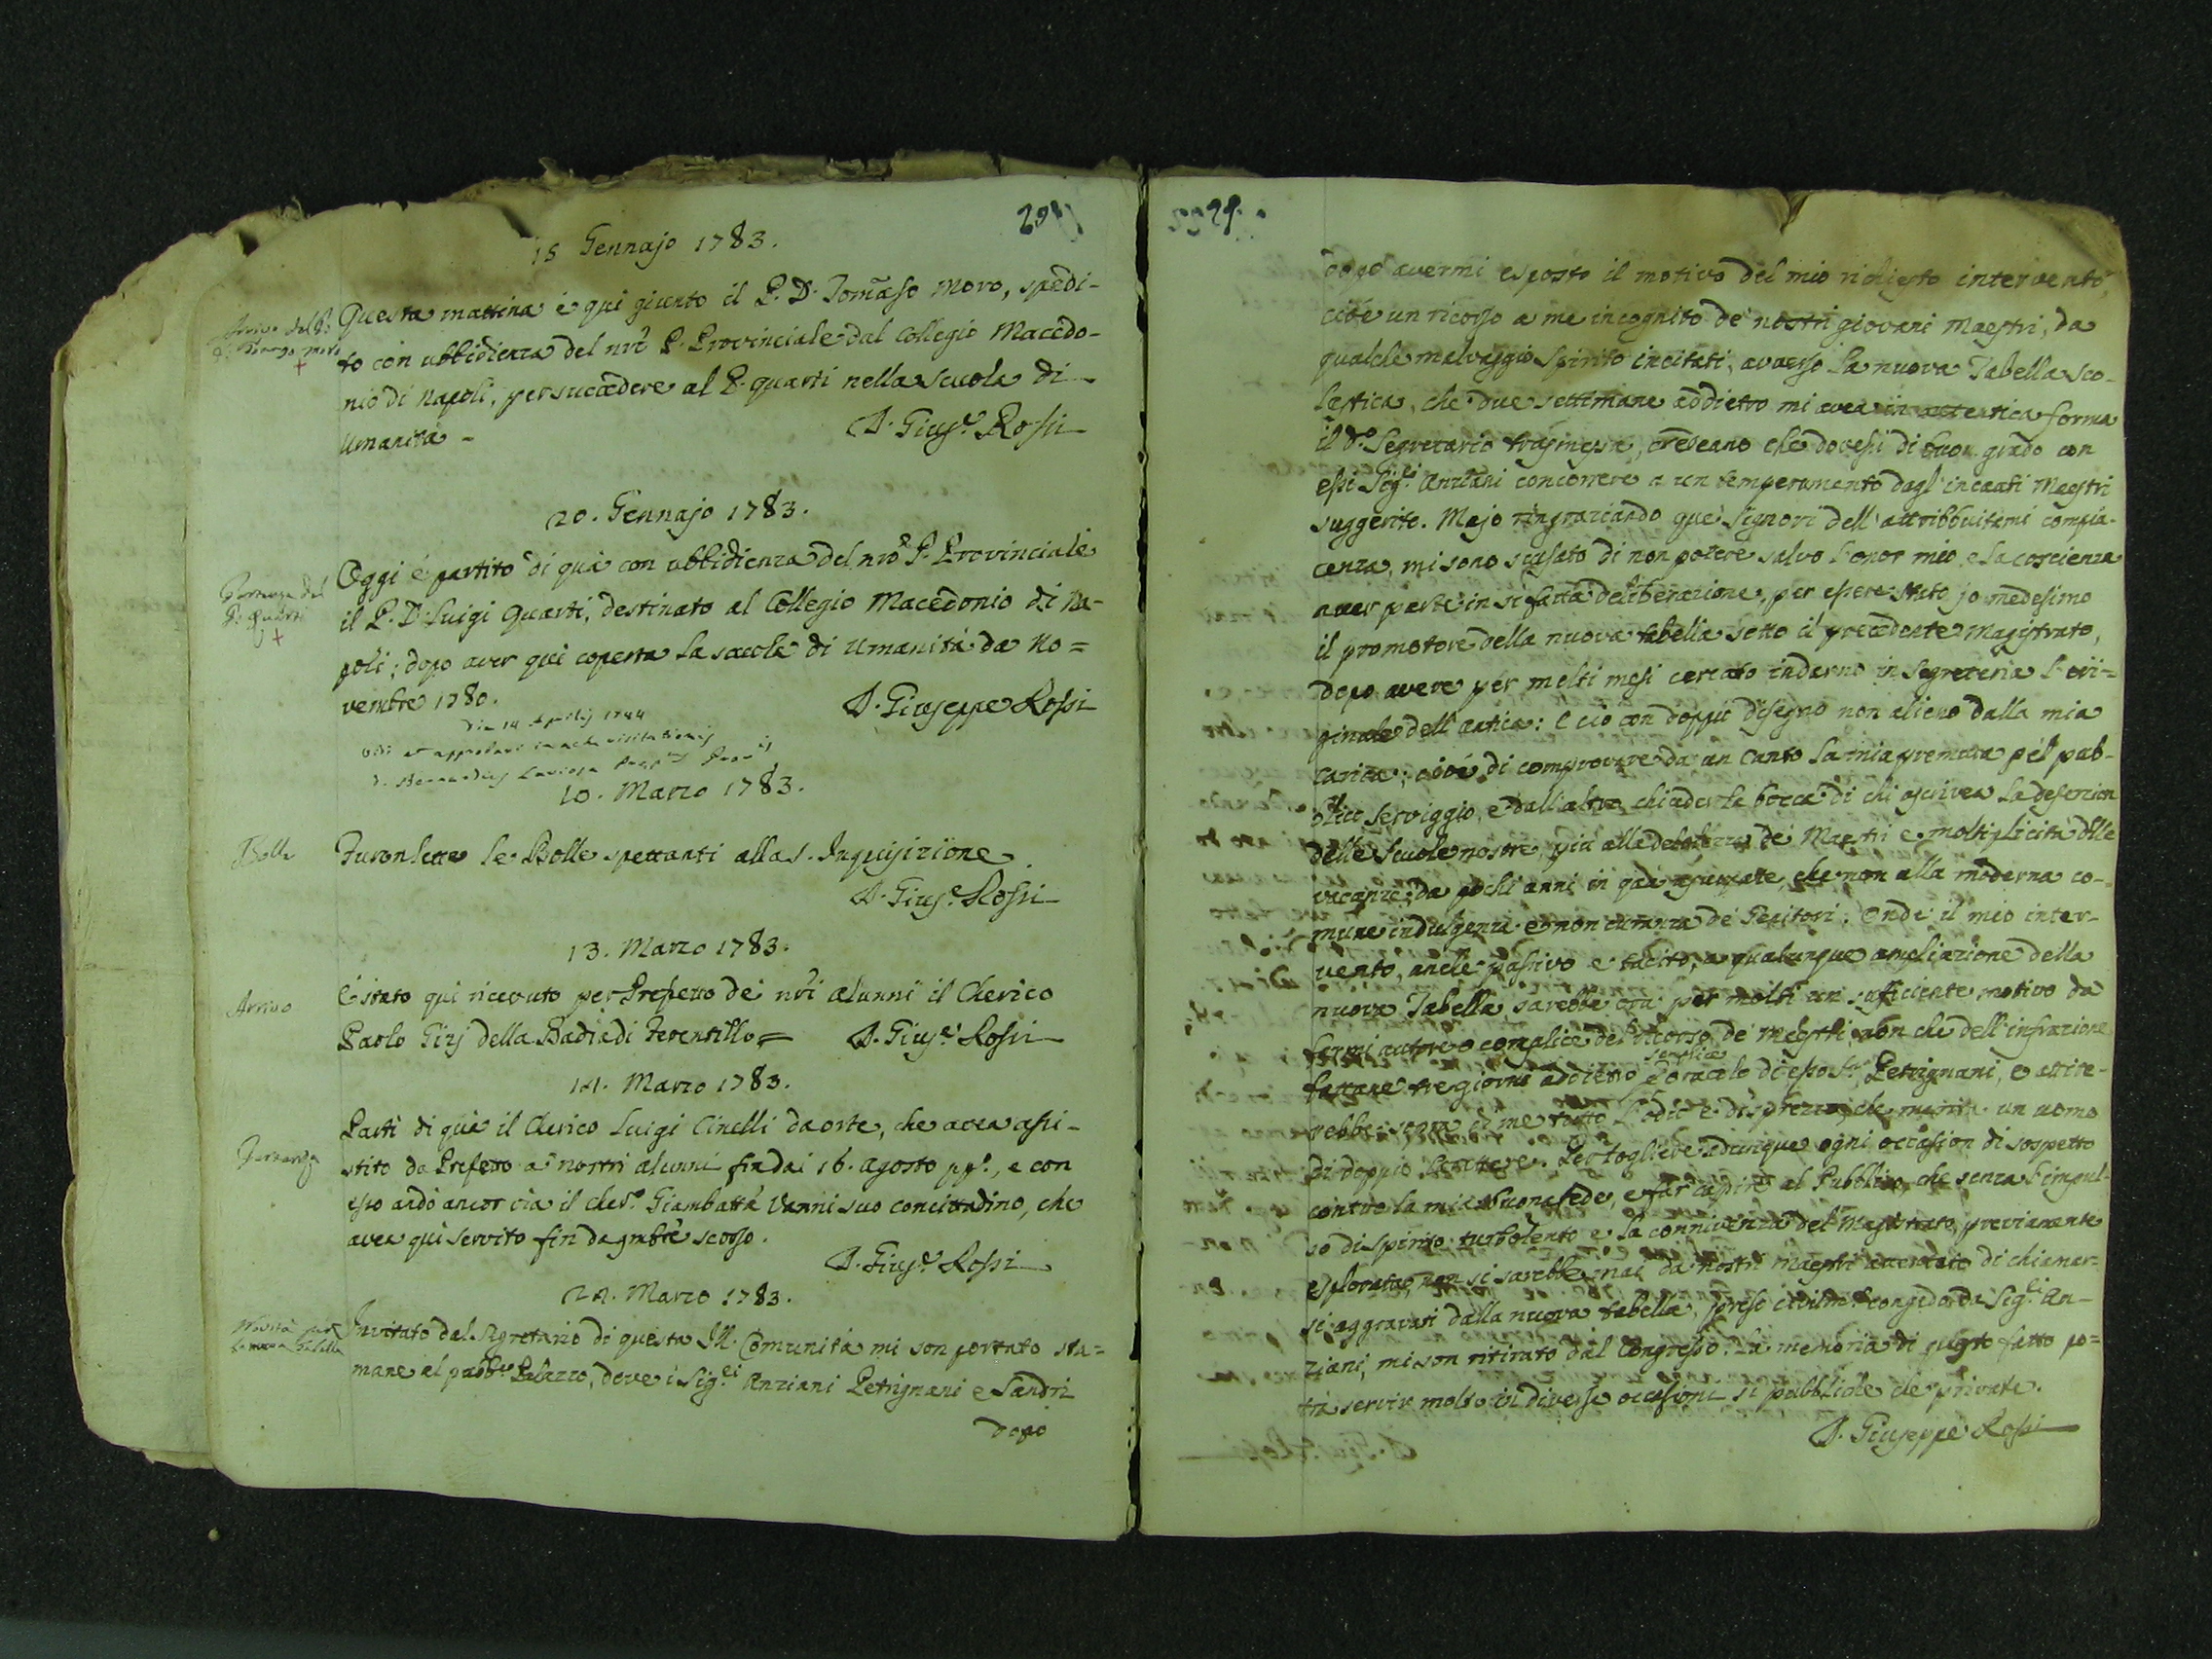 29
15 Gennajo 1783.
Arrivo del P.
D. Tomaso Moro
Questa mattina è qui giunto il P. D. Tomãso Moro, spedi-
to con ubbidienza del nrõ P. Provinciale dal Collegio Macedo-
nio di Napoli, per succedere al P. Quarti nella scuola di
Umanità -
D. Gius.e Rossi
20. Gennajo 1783.
Partenza del
P. Quarti
Oggi è partito di quà con ubbidienza del nrõ P. Provinciale
il P. D. Luigi Quarti, destinato al Collegio Macedonio di Na-
poli; dopo aver qui coperta la scuola di Umanità da No=
vembre 1780.
D. Giuseppe Rossi
Die 14 Aprilis
vidi et approbavi in actu visitationis
10. Marzo 1783.
Bolle
Furon lette le Bolle spettanti alla S. Inquisizione.
D. Gius.e Rossi
13. Marzo 1783.
Arrivo
È stato qui ricevuto per Prefetto de' nrĩ alunni il Cherico
Paolo Gizj della Badia di Ferentillo=
D. Gius.e Rossi
14. Marzo 1783.
Partenza
Partì di quà il Cherico Luigi Cinelli da Orte, che avea assi-
stito da Prefetto a' nostri alunni fin dai 16. Agosto pp.o, e con
esso andò ancor via il Cher.o Giambattã Vanni suo concittadino, che
avea quì servito fin da 9mbre scorso.
D. Gius.e Rossi
24. Marzo 1783.
Novità per
la nuova Tabella
Invitato dal Segretario di questa Ill. Comunità mi son portato sta=
mane al pubb.co Palazzo, dove i Sig.ri Anziani Petrignani e Sandri
dopo
29.
dopo avermi esposto il motivo del mio richiesto intervento,
cioè un ricorso a me incognito de' nostri giovani Maestri, da
qualche malvaggio Spirito incitati, avverso la nuova Tabella Sco-
lastica, che due settimane addietro mi avea in autentica forma
il d.o Segretario trasmessa, credeano che dovessi di buon grado con
essi Sig.ri Anziani concorrere a un temperamento dagl'incauti Maestri
suggerito. Ma jo ringraziando que' Signori dell'attribbuitami compia-
cenza, mi sono scusato di non potere salvo l'onor mio e la coscienza
aver parte in sì fatta deliberazione, per essere stato jo medesimo
il promotore della nuova tabella sotto il precedente Magistrato,
dopo avere per molti mesi cercato indarno in Segreteria l'ori=
ginale dell'antica: e ciò con doppio disegno non alieno dalla mia
carica; cioè di comprovare da un canto la mia premura pel pub-
blico Serviggio, e dall'altro chiuder la bocca di chi ascrivea la deserzion
delle Scuole nostre, più alla debolezza de' Maestri e moltiplicità delle
vacanze, da pochi anni in quà usurpate, che non alla moderna co-
mune indulgenza e non curanza de' Genitori. Onde il mio inter-
vento, anche passivo e tacito, a qualunque ampliazione della
nuova Tabella, sarebbe ora per molti un sufficiente motivo da
farmi autore o complice del ricorso de' Maestri, non che dell'infrazione
fattane tre giorni addietro l'oracolo di esso S.r Petrignani, e attire-
rebbe sopra di me tutto l'odio e disprezzo, che merita un uomo
di doppio carattere. Per togliere adunque ogni occasion di sospetto
contro la mia buona fede, e far capire al Pubblico, che senza l'impul-
so di spirito turbolento e la connivenza del Magistrato previamente
esplorata, non si sarebbe mai da' nostri Maestri di chiamar-
si aggravati dalla nuova tabella, preso civilm.te congedo da' Sig.ri An-
ziani, mi son ritirato dal Congresso. La memoria di questo fatto po=
trà servir molto in diverse occasioni sì pubbliche che private.
D. Giuseppe Rossi